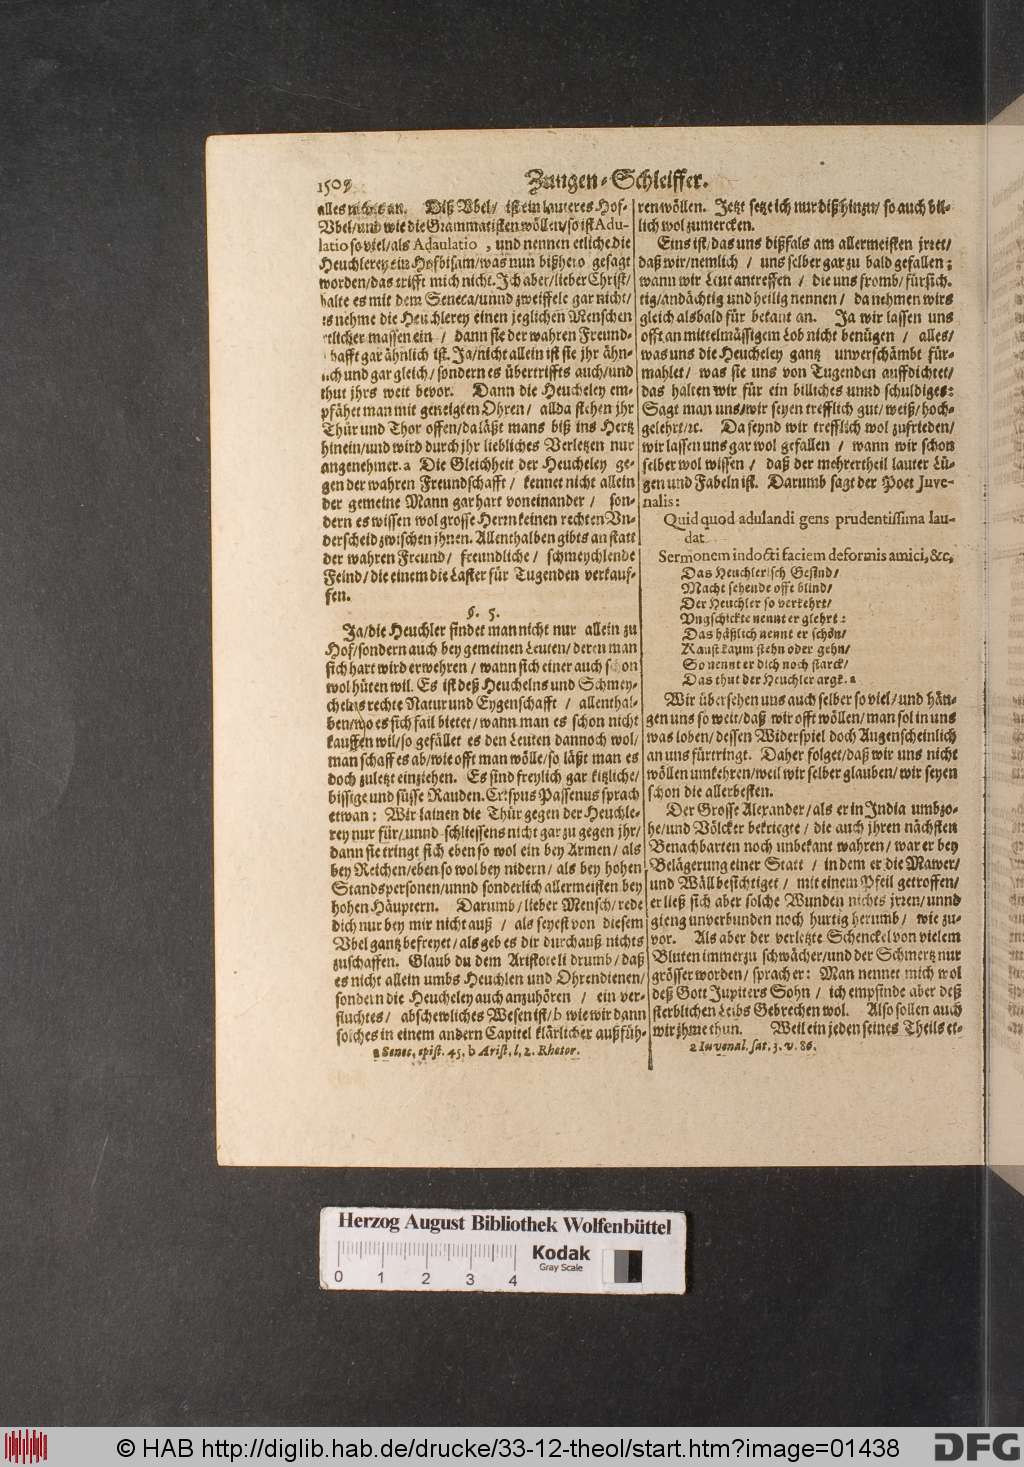 1509
Zungen-Schleiffer.
alles an. Diß Vbel/ ist ein lauteres Hof-
Vbel/und wie die Grammatisten wöllen/so ist Adu-
latio so viel/als Adaulatio, und nennen etliche die
Heuchlerey ein Hofbisam/was nun bißhero gesagt
worden/das trifft mich nicht. Ich aber/lieber Christ/
halte es mit dem Seneca/unnd zweiffele gar nicht/
es nehme die Heuchlerey einen jeglichen Menschen
etlicher massen ein/ dann sie der wahren Freund-
schafft gar ähnlich ist. Ja/nicht allein ist sie jhr ähn-
lich und gar gleich/sondern es übertriffts auch/und
thut jhrs weit bevor. Dann die Heucheley em-
pfähet man mit geneigten Ohren/ allda stehen jhr
Thür und Thor offen/da läßt mans biß ins Hertz
hinein/und wird durch jhr liebliches Verletzen nur
angenehmer. a Die Gleichheit der Heucheley ge-
gen der wahren Freundschafft/ kennet nicht allein
der gemeine Mann gar hart voneinander/ son-
dern es wissen wol grosse Herrn keinen rechten Vn-
derscheid zwischen jhnen. Allenthalben gibts an statt
der wahren Freund/ freundliche/ schmeychlende
Feind/die einem die Laster für Tugenden verkauf-
fen.
§. 5.
Ja/die Heuchler findet man nicht nur allein zu
Hof/sondern auch bey gemeinen Leuten/deren man
sich hart wird erwehren/wann sich einer auch schon
wol hüten wil. Es ist deß Heuchelns und Schmey-
chelns rechte Natur und Eygenschafft/ allenthal-
ben/wo es sich fail bietet/wann man es schon nicht
kauffen wil/so gefället es den Leuten dannoch wol/
man schaff es ab/wie offt man wölle/so läßt man es
doch zuletzt einziehen. Es sind freylich gar kitzliche/
bissige und süsse Rauden. Crispus Passenus sprach
etwan: Wir lainen die Thür gegen der Heuchle-
rey nur für/unnd schliessens nicht gar zu gegen jhr/
dann sie tringt sich eben so wol ein bey Armen/als
bey Reichen/eben so wol bey nidern/als bey hohen
Standspersonen/unnd sonderlich allermeisten bey
hohen Häuptern. Darumb/lieber Mensch/rede
dich nur bey mir nicht auß/ als seyest von diesem
Vbel gantz befreyet/als geb es dir durchauß nichts
zuschaffen. Glaub du dem Aristoteli drumb/daß
es nicht allein umbs Heuchlen und Ohrendienen/
sondern die Heucheley auch anzuhören/ ein ver-
fluchtes/ abschewliches Wesen ist/b wie wir dann
solches in einem andern Capitel klärlicher außfüh-
a Senec, epist. 45. b Arist. l, 2. Rhetor.
ren wöllen. Jetzt setze ich nur diß hinzu/ so auch bil-
lich wol zumercken.
Eins ist/das uns dißfals am allermeisten jrret/
daß wir/nemlich/ uns selber gar zu bald gefallen;
wann wir Leut antreffen/ die uns fromb/fürsich-
tig/andächtig und heilig nennen/ da nehmen wirs
gleich alsbald für bekant an. Ja wir lassen uns
offt an mittelmässigem Lob nicht benügen/ alles/
was uns die Heucheley gantz unverschämbt für-
mahlet/ was sie uns von Tugenden auffdichtet/
das halten wir für ein billiches unnd schuldiges:
Sagt man uns/wir seyen trefflich gut/weiß/hoch-
gelehrt/ꝛc. Da seynd wir trefflich wol zufrieden/
wir lassen uns gar wol gefallen/ wann wir schon
selber wol wissen/ daß der mehrertheil lauter Lü-
gen und Fabeln ist. Darumb sagt der Poet Juve-
nalis:
Quid quod adulandi gens prudentissima lau-
dat
Sermonem indocti faciem deformis amici, &c,
Das Heuchlerisch Gesind/
Macht sehende offt blind/
Der Heuchler so verkehrt/
Vngschickte nennt er glehrt:
Das häßlich nennt er schön/
Kaust kaum stehn oder gehn/
So nennt er dich noch starck/
Das thut der Heuchler argk. a
Wir übersehen uns auch selber so viel/und hän-
gen uns so weit/daß wir offt wöllen/man sol in uns
was loben/dessen Widerspiel doch Augenscheinlich
an uns fürtringt. Daher folget/daß wir uns nicht
wöllen umkehren/weil wir selber glauben/wir seyen
schon die allerbesten.
Der Grosse Alexander/als er in India umbzo-
he/und Völcker bekriegte/die auch jhren nächsten
Benachbarten noch unbekant wahren/war er bey
Belägerung einer Statt/ in dem er die Mawer/
und Wäll besichtiget/ mit einem Pfeil getroffen/
er ließ sich aber solche Wunden nichts jrren/unnd
gieng unverbunden noch hurtig herumb/ wie zu-
vor. Als aber der verletzte Schenckel von vielem
Bluten immerzu schwächer/und der Schmertz nur
grösser worden/sprach er: Man nennet mich wol
deß Gott Jupiters Sohn/ ich empfinde aber deß
sterblichen Leibs Gebrechen wol. Also sollen auch
wir jhme thun. Weil ein jeden seines Theils et-
a Juvenal. sat. 3. v. 86.
Herzog August Bibliothek Wolfenbüttel
0 1 2 3 4
Kodak
Gray Scale
© HAB http://diglib.hab.de/drucke/33-12-theol/start.htm?image=01438
DFG